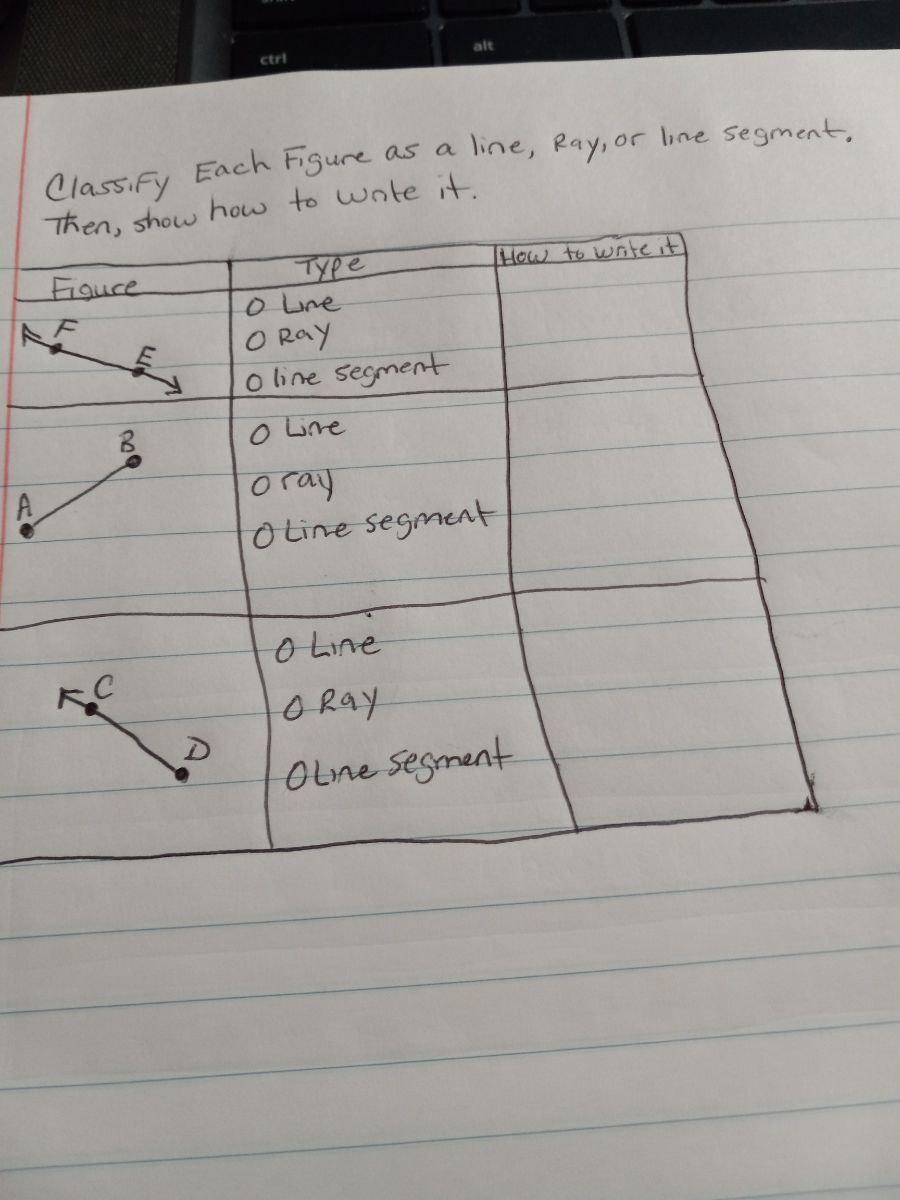 ctrl
alt
Classify Each Figure as a line, Ray, or line segment.
Then, show how to write it.
Figure Type How to write it
F
E
O Line
O Ray
O line segment
B
A
O Line
O ray
O Line segment
C
D
O Line
O Ray
O Line segment